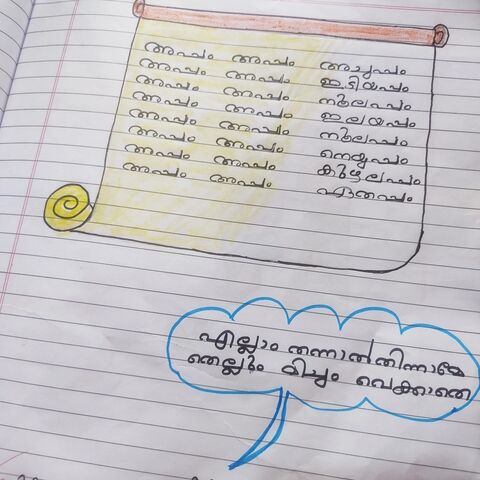 അപ്പം അപ്പം അച്ചപ്പം
അപ്പം അപ്പം ഇടിയപ്പം
അപ്പം അപ്പം നൂലപ്പം
അപ്പം അപ്പം ഇലയപ്പം
അപ്പം അപ്പം നൂലപ്പം
അപ്പം അപ്പം നെയ്യപ്പം
അപ്പം അപ്പം കുഴലപ്പം
അപ്പം അപ്പം ഏതപ്പം
എല്ലാം തന്നാൽ തിന്നാമേ
തെല്ലും മിച്ചം വെക്കാതെ